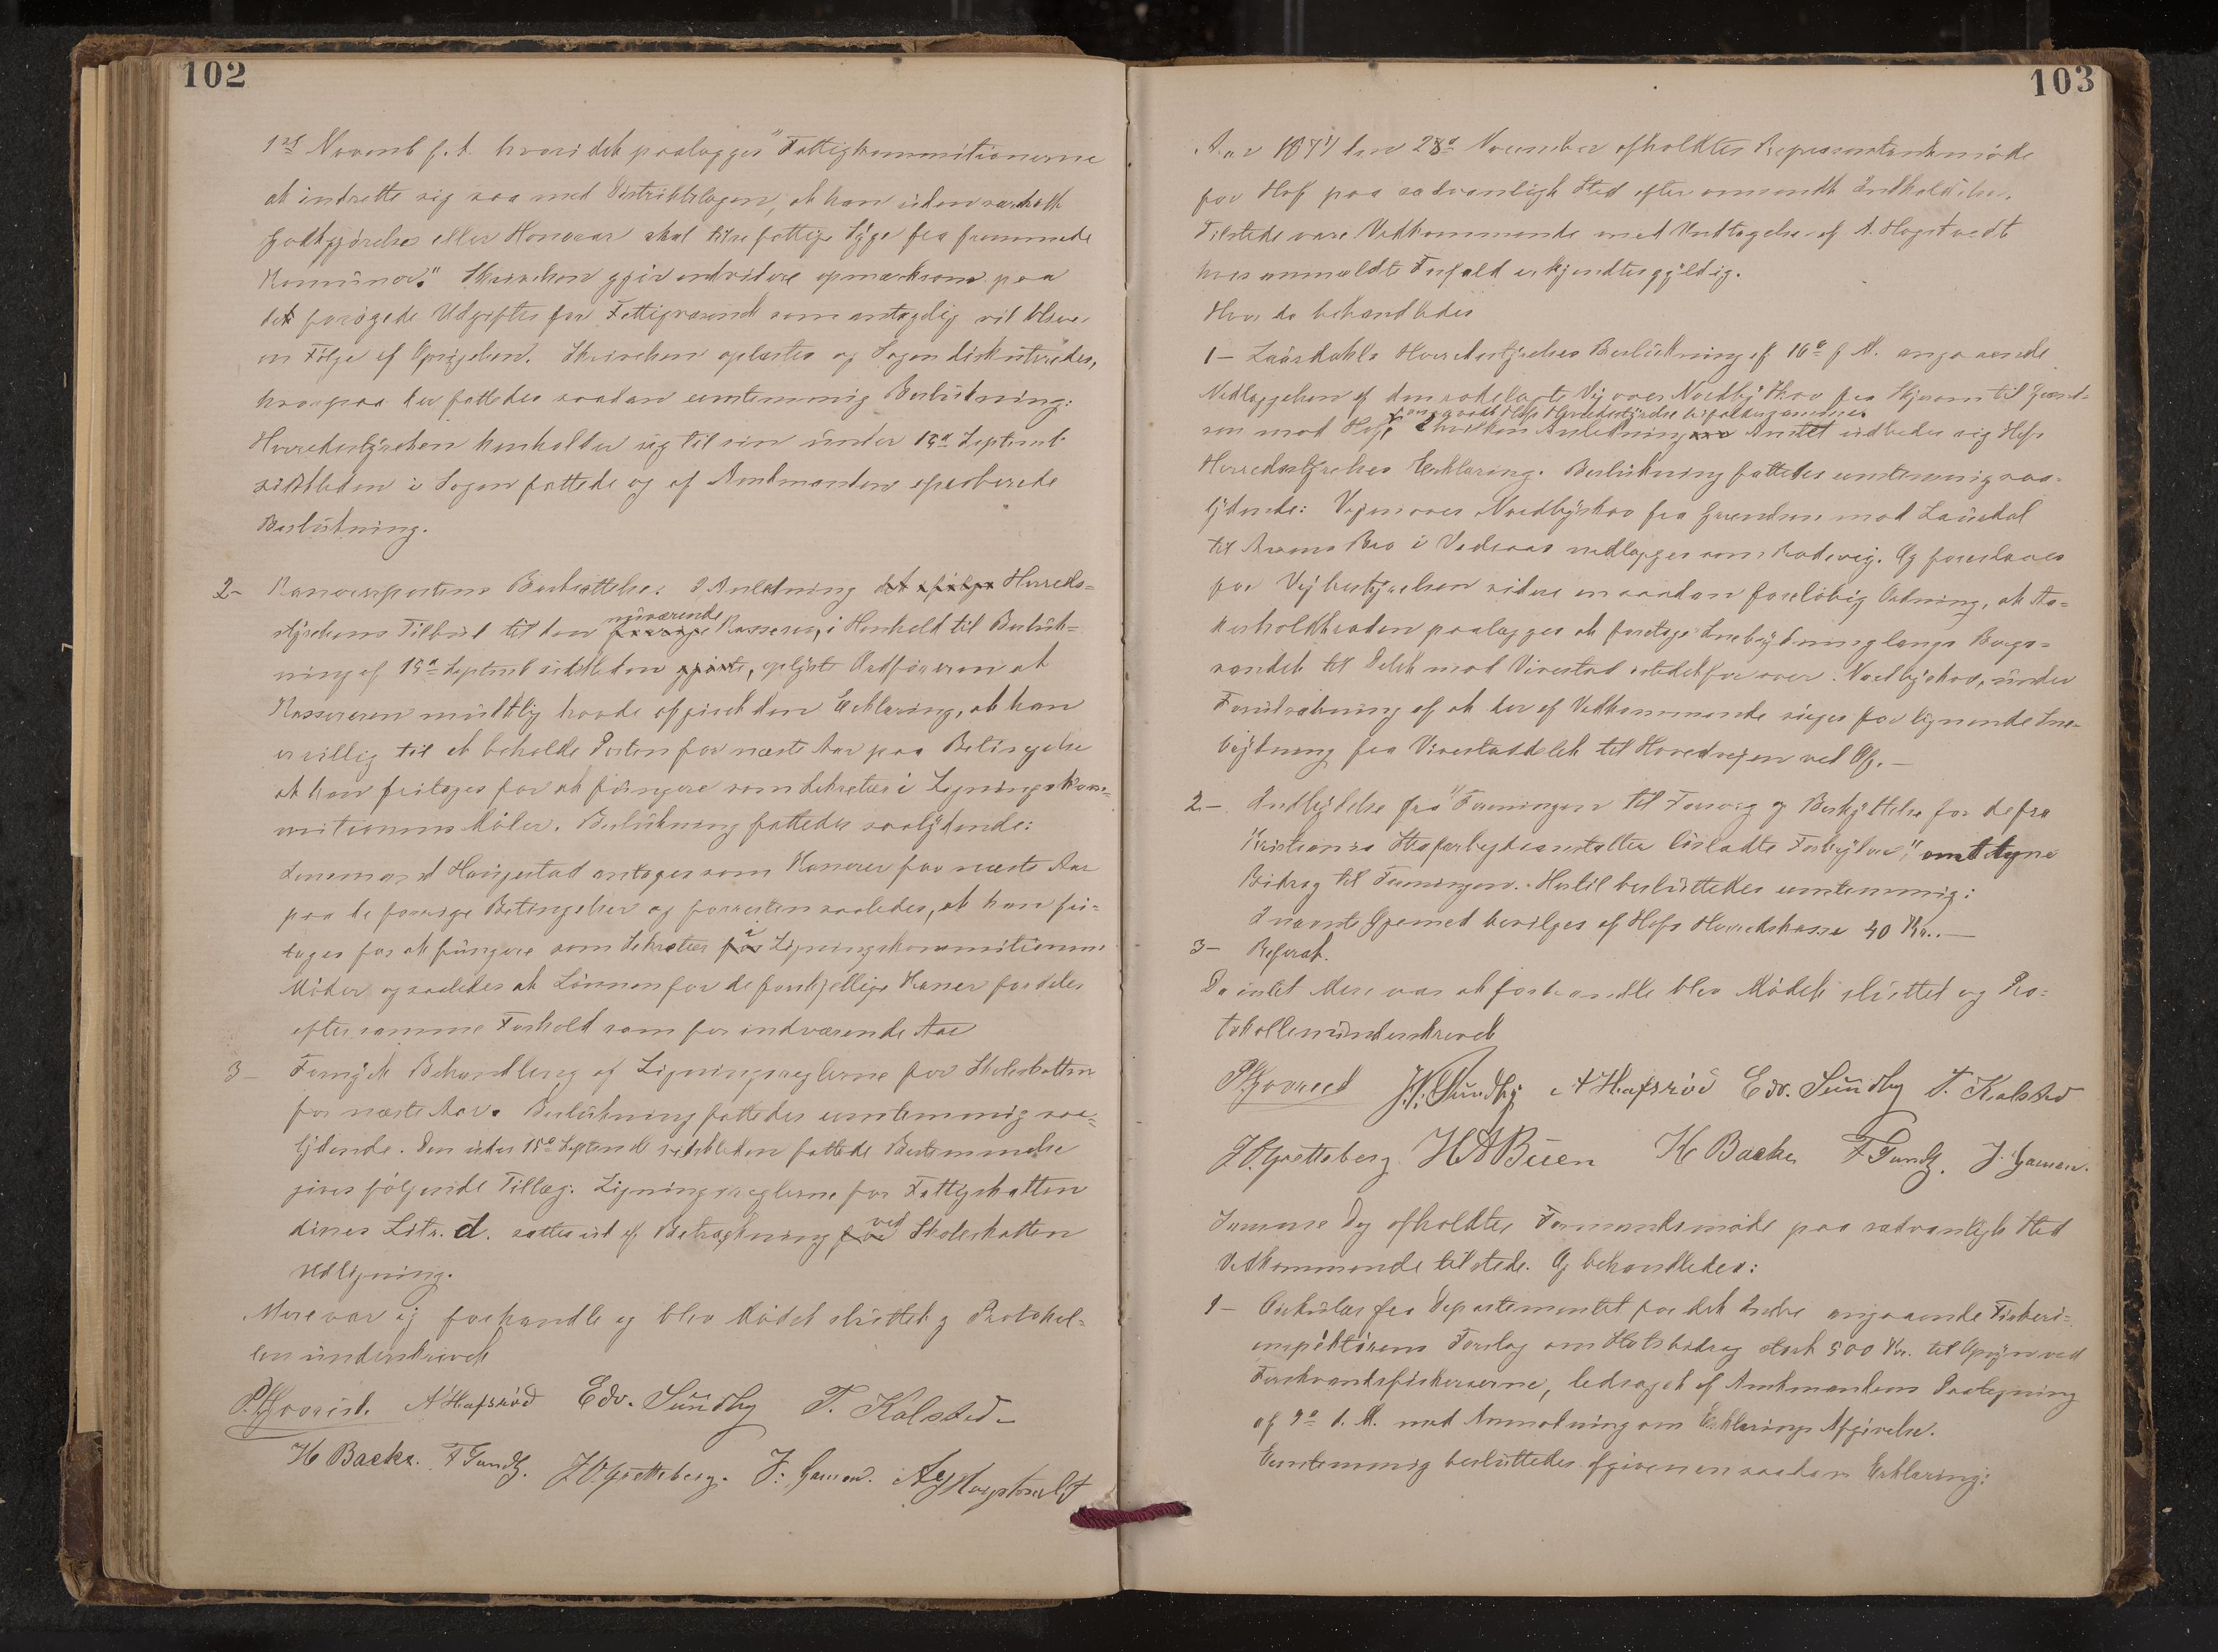 102
1ste Novemb f. A. hvori det paalægges "Fattigkommitionerne
at indrette sig saa med Distriktslægen, at han uden særskilt
Godtgjørelse eller Honorar skal tilse fattige Syge fra fremmede
Komuner." Skrivelsen gjør endvidere opmærksom paa
det forøgede Udgifter for Fattigvæsenet som antagelig vil blive
en Følge af Opsigelsen. Skrivelsen oplæstes og Sagen diskuteredes,
hvorpaa der fattedes saadan eenstemmig Beslutning:
Herredsstyrelsen henholder sig til sin under 15de Septemb
sidstleden i Sagen fattede og af Amtmanden approberede
Beslutning.
2- Kasserерpostens Besættelse. I Anledning det ifølge Herreds=
styrelsens Tilbud til den forrige nuværende Kasserer, i Henhold til Beslut=
ning af 15de Septemb sidstleden gjorte, oplyste Ordføreren at
Kassereren mundtlig havde afgivet den Erklæring, at han
er villig til at beholde Posten for næste Aar paa Betingelse
at han fritages for at fungere som Sekretær i Ligningskom=
mitionens Møder. Beslutning fattedes saalydende:
Lensmand Haugestad antages som Kasserer for næste Aar
paa de forrige Betingelser og forresten saaledes, at han fri=
tages for at fungere som Sekretær for i Ligningskommitionens
Møder og saaledes at Lønnen for de forskjellige Kasser fordeles
efter samme Forhold som for indværende Aar
3- Fornyet Behandling af Ligningsreglerne for Skoleskatten
for næste Aar. Beslutning fattedes eenstemmig saa=
lydende. Den under 15de Septemb sidstleden fattede Bestemmelse
gives følgende Tillæg. Ligningsreglerne for Fattigskatten
dines Litr. d. sættes ud af Betragtning for ved Skoleskatten
Udligning.
Mere var ej forhandle og blev Mødet sluttet og Protokol=
len underskrevet
P. Hovrud. A Hafsrød Edv. Sundby T. Kalsted
H Backe. F Tandb. J O Grettsberg. J. Hansen. A Hagstvedt
103
Aar 1877 den 28de November afholdtes Repræsentantmøde
for Hof paa sædvanligt Sted efter omsendt Indkaldelse.
Tilstede vare Vedkommende med Undtagelse af A. Hagstvedt
hvis anmeldte Forfald erkjendtes gyldig.
Hvor da behandledes
1- Laurdahls Herredsstyrelses Beslutning af 16de f M. angaaende
Nedlæggelsen af den rodelagte Vej over Nordby Skov fra Skjerom til Grænd=
sen mod Hof, om og vidt Hofs Herredsstyrelse bifalder samme. I hvilken Anledning Amtet udbeder sig Hofs
Herredsstyrelses Erklæring. Beslutning fattedes eenstemmig saa=
lydende: Vejen over Nordbyskov fra Grændsen mod Laurdal
til Aasens Bro i Vadsaas nedlægges som Rodevej. Og foreslaaes
for Vejbestyrelsen videre en saadan foreløbig Ordning, at Aa=
kerholdtroden paalægges at foretage Snebrydning langs Bergs=
vandet til Delet mod Virestad istedetfor over Nordbyskov, under
Forudsætning af at der af Vedkommende sørges for lignende Sne=
brydning fra Virestaddelet til Hovedvejen ved Of.—
2- Indbydelse fra "Foreningen til Forsorg og Beskyttelse for de fra
Kristiania Strafarbejdsanstalter løsladte Forbrydere," om at tegne
Bidrag til Foreningen. Hertil besluttedes eenstemmig:
I nævnte Øjemed bevilges af Hofs Herredskasse 40 Kr.—
3- Referat.
Da intet Mere var at forhandle blev Mødet sluttet og Pro=
tokollen underskrevet
P. Hovrud J. N. Sundby A Hafsrød Edv. Sundby T. Kalsted
J O Grettsberg H A Buen H Backe F Tandb. J. Hansen.
Samme Dag afholdtes Formandsmøde paa sædvanligt Sted
Vedkommende tilstede. Og behandledes:
1- Cirkulær fra Departementet for det Indre angaaende Fiskeri=
inspektørens Forslag om Statsbidrag stort 500 Kr. til Opsyn ved
Ferskvandsfiskerierne, ledsaget af Amtmandens Paategning
af 9de d. M. med Anmodning om Erklærings Afgivelse.
Eenstemmig besluttedes afgiven en saadan Erklæring: